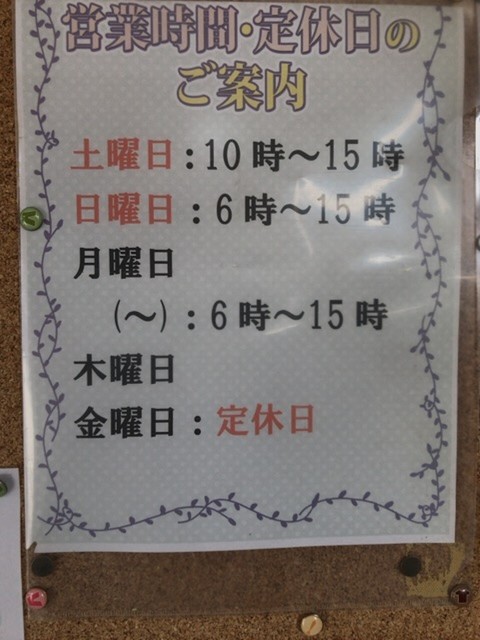 営業時間・定休日の
ご案内
土曜日：10時～15時
日曜日：6時～15時
月曜日
（～）：6時～15時
木曜日
金曜日：定休日